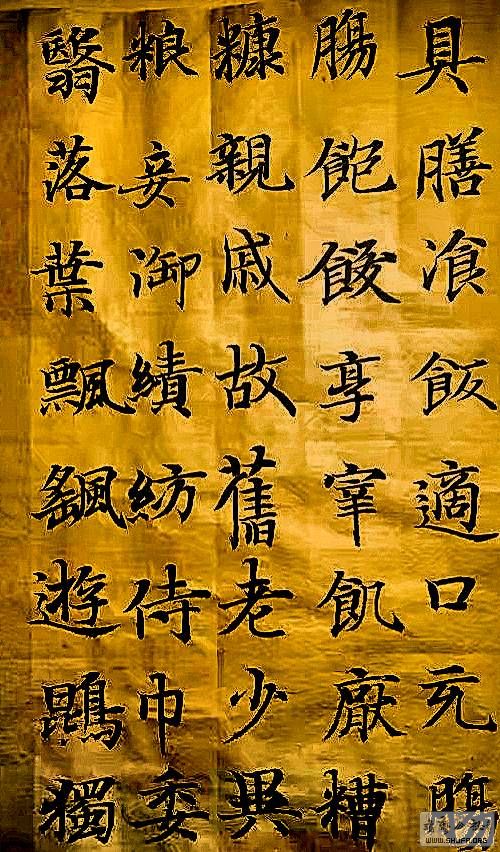 具膳飡飯適口充
腸飽飫享宰飢厭糟
糠親戚故舊老少異
粮妾御績紡侍巾委
翳落葉飄颻遊鵾獨
WWW.SHUFA.ORG